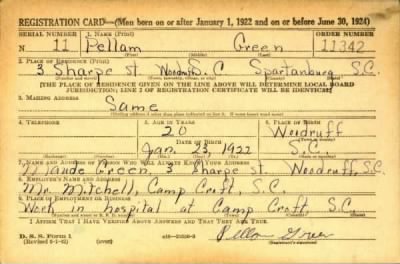 REGISTRATION CARD—(Men born on or after January 1, 1922 and on or before June 30, 1924)
SERIAL NUMBER 1. NAME (Print) ORDER NUMBER
N 11 Pellam Green 11342
(First) (Middle) (Last)
2. PLACE OF RESIDENCE (Print)
3 Sharpe st. Woodruff S.C. Spartanburg S.C.
[THE PLACE OF RESIDENCE GIVEN ON THE LINE ABOVE WILL DETERMINE LOCAL BOARD
JURISDICTION; LINE 2 OF REGISTRATION CERTIFICATE WILL BE IDENTICAL]
3. MAILING ADDRESS
Same
4. TELEPHONE 5. AGE IN YEARS 6. PLACE OF BIRTH
20 Woodruff
DATE OF BIRTH
Jan. 23, 1922 S.C.
7. NAME AND ADDRESS OF PERSON WHO WILL ALWAYS KNOW YOUR ADDRESS
Maude Green, 3 Sharpe st. Woodruff, S.C.
8. EMPLOYER'S NAME AND ADDRESS
Mr. Mitchell, Camp Croft, S.C.
9. PLACE OF EMPLOYMENT OR BUSINESS
Work in hospital at Camp Croft, S.C.
I AFFIRM THAT I HAVE VERIFIED ABOVE ANSWERS AND THAT THEY ARE TRUE.
D. S. S. Form 1
(Revised 6-1-42) (over)